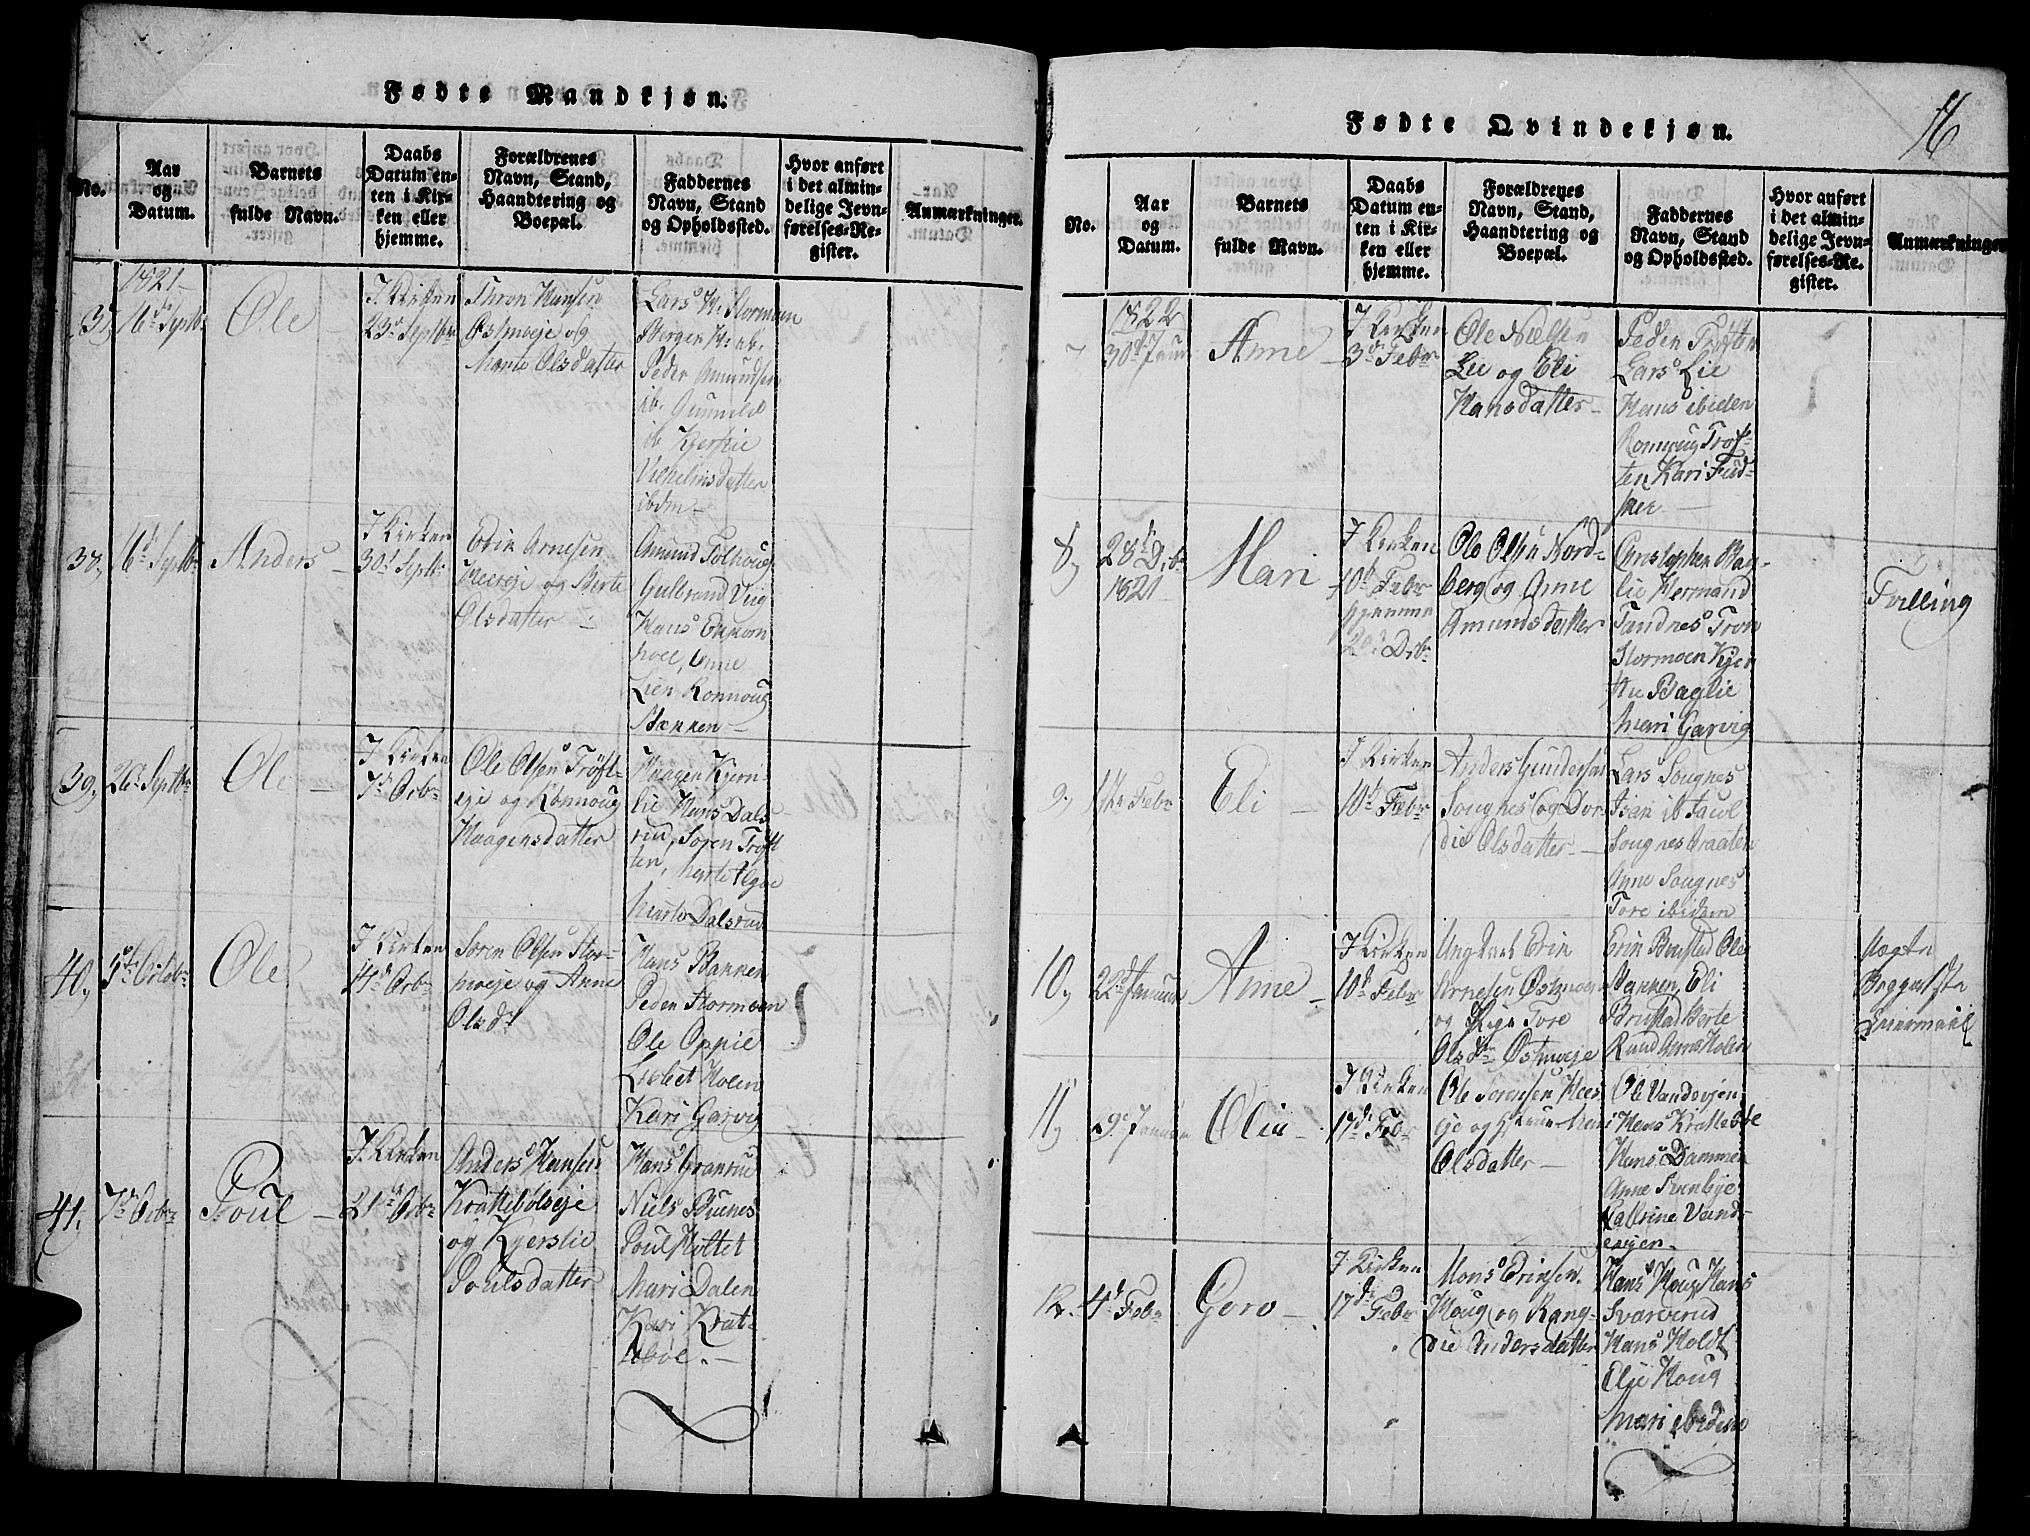 Fødte Mandkjøn.
No.
Aar
og
Datum.
Barnets
fulde Navn.
Daabs
Datum en-
ten i Kir-
ken eller
hjemme.
Forældrenes
Navn, Stand,
Haandtering og
Boepæl.
Faddernes
Navn, Stand
og Opholdssted.
Hvor anført
i det almin-
delige Jevn-
førelses-Re-
gister.
Anmærkninger.
1821
37, 16de Septbr
Ole
I Kirken
23de Septbr
Thron Hansen
Østmoeje og
Marie Olsdatter
Lars H: Stormoen
Børger H: ib.
Peder Amundsen
ib. Gunnild
ib Kjerstie
Vilhelmsdatter
ibdm
38, 16d Septbr
Anders
I Kirken
30d Septbr
Erik Arnesen
og Berte
Olsdatter
Amund Tolhoug
Gulbrand
Hans
Anne
Lien Ronnoug
Bakken
39, 26d Septbr
Ole
I Kirken
7d Octbr
Ole Olsen Trøft-
eje og Ronnoug
Haagensdatter
Haagen Kjern-
lie Hans Dals-
rud, Søren Trøft-
ten,
Marte Dalsrud
40, 5te Octobr
Ole
I Kirken
14d Octbr
Søren Olsen Stor-
moeje og Anne
Olsdr
Hans Bakken
Peder Stormoen
Ole Oppie
Lisbet Holen
Kari Garvig
41, 7d Octbr
Poul
I Kirken
21d Octbr
Anders Hansen
Krattebøleje
og Kjerstie
Poulsdatter
Hans Granrud
Niels Bruenes
PoulHoltet
Mari Dalen
Kari Krat-
tebøe.
Fødte Qvindekjøn.
16
No.
Aar
og
Datum.
Barnets
fulde Navn.
Daabs
Datum en-
ten i Kir-
ken eller
hjemme.
Forældrenes
Navn, Stand,
Haandtering og
Boepæl.
Faddernes
Navn, Stand
og Opholdssted.
Hvor anført
i det almin-
delige Jevn-
førelses-Re-
gister.
Anmærkninger
1822
7 30d Janr
Anne
I Kirken
3d Febr
Ole Nielsen
Lie og Eli
Hansdatter
Peder Trøften
Lars Lie
Hans ibidem
Ronnoug Trøf-
ten Kari
8, 28d Dcbr
1821
Mari
I Kirken
10d Febr
hjemme
29d Dcbr
Ole Olsen Nord-
berg og Anne
Amundsdatter
Christopher Bag-
lie Hermand
Sandnes Tron
Stormoen Kjer-
stie Baglie
Mari Garvig
Tvilling
9, 1ste Febr
Eli
I Kirken
10d Febr
Anders Gundersen
Sougnes og Dor-
die Olsdatter
Lars Sougnes
Iver ib Jacob
Sougnesbraaten
Anne Sougnes
Tore ibidem
10, 22d Januar
Anne
I Kirken
10d Febr
Ungkarl Erik
Arnesen Østmoen
og Pige Tore
Olsdtr Østmoeje
Erik Brustad Ole
Bakken, Eli
Brustad Berte
Ruud Anne Holen
Uægte
Lejermaal
11, 9d Januar
Olia
I Kirken
17d Febr
Ole Sørensen
eje og Kone Mari
Olsdatter
Ole Vandsvjen
Hans Krattebøe
Hans Dammen
Anne
Kattrine Vand-
svjen
12. 4d Febr
Goro
I Kirken
17de Febr
Mons Eriksen
Houg og Rang-
die Andersdatter
Hans Houg Hans
Svarverud
Hans Holdt
Elie Houg
Mari ibidem